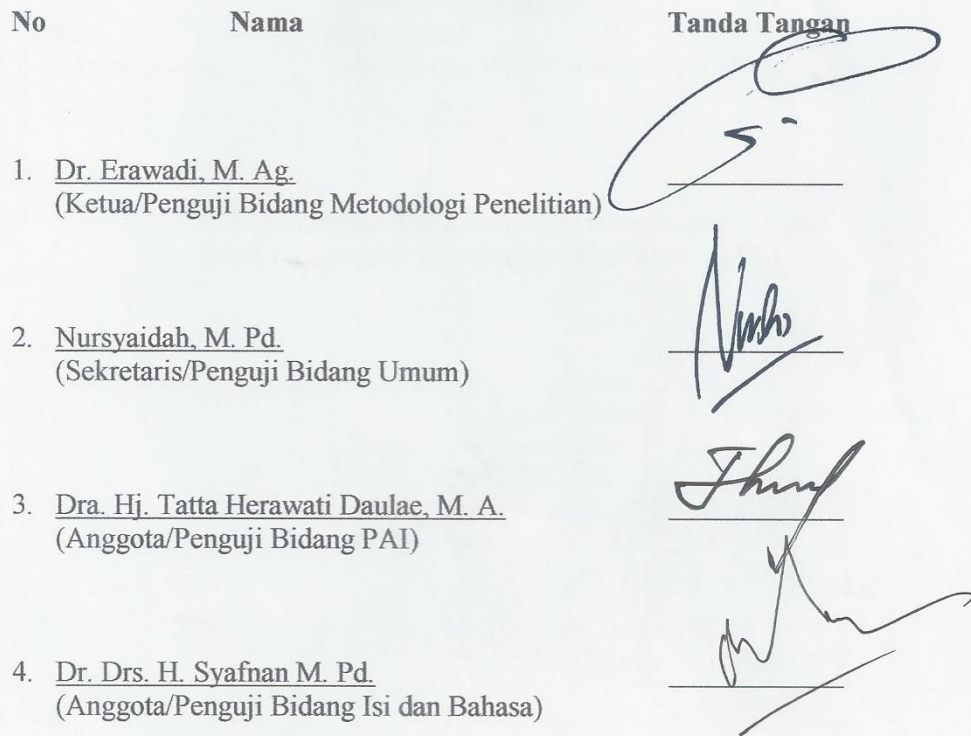 No Nama Tanda Tangan
1. Dr. Erawadi, M. Ag.
(Ketua/Penguji Bidang Metodologi Penelitian)
2. Nursyaidah, M. Pd.
(Sekretaris/Penguji Bidang Umum)
3. Dra. Hj. Tatta Herawati Daulae, M. A.
(Anggota/Penguji Bidang PAI)
4. Dr. Drs. H. Syafnan M. Pd.
(Anggota/Penguji Bidang Isi dan Bahasa)